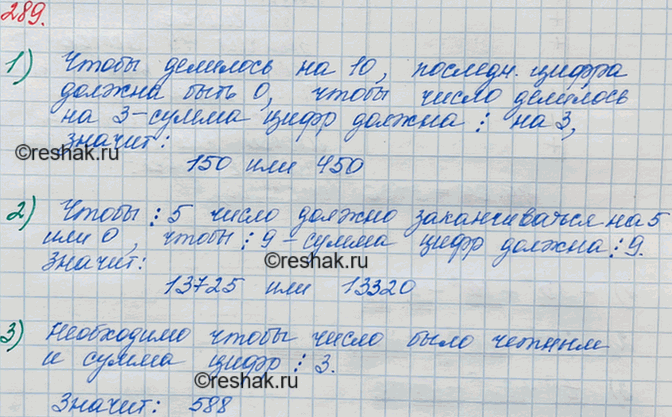 289.
1) Чтобы делилось на 10, последн. цифра
должна быть 0, чтобы число делилось
на 3 - сумма цифр должна ⋮ на 3,
значит:
©reshak.ru
150 или 450
2) Чтобы ⋮ 5 число должно заканчиваться на 5
или 0, чтобы ⋮ 9 - сумма цифр должна ⋮ 9.
Значит:
©reshak.ru
13725 или 13320
3) Необходимо чтобы число было четным
и сумма цифр ⋮ 3.
©reshak.ru
Значит: 588